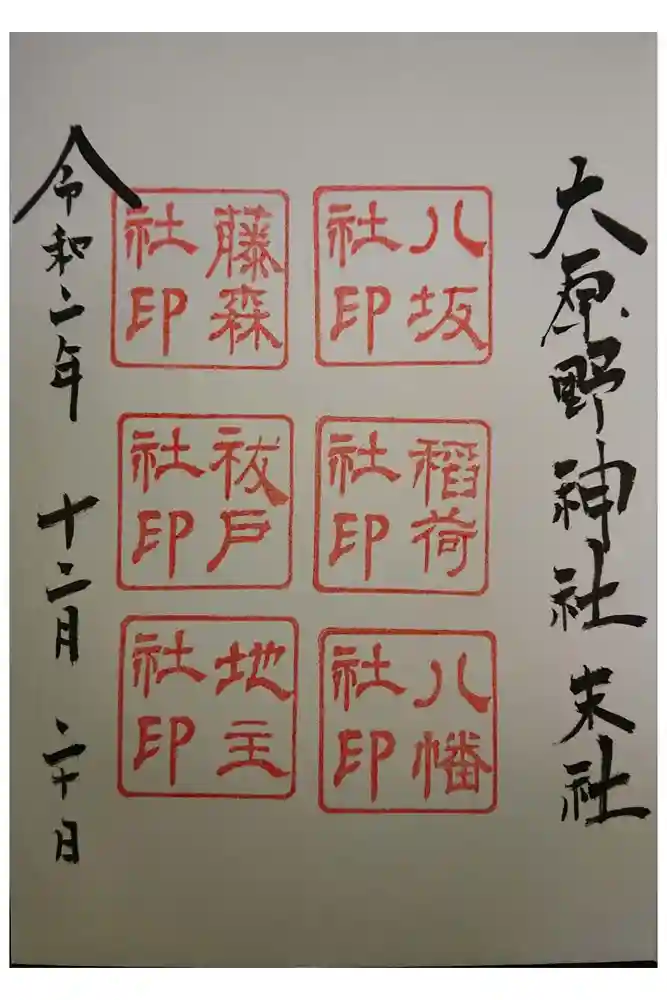 大原野神社 末社
八坂社印
稲荷社印
八幡社印
藤森社印
祓戸社印
地主社印
令和二年 十二月 二十日